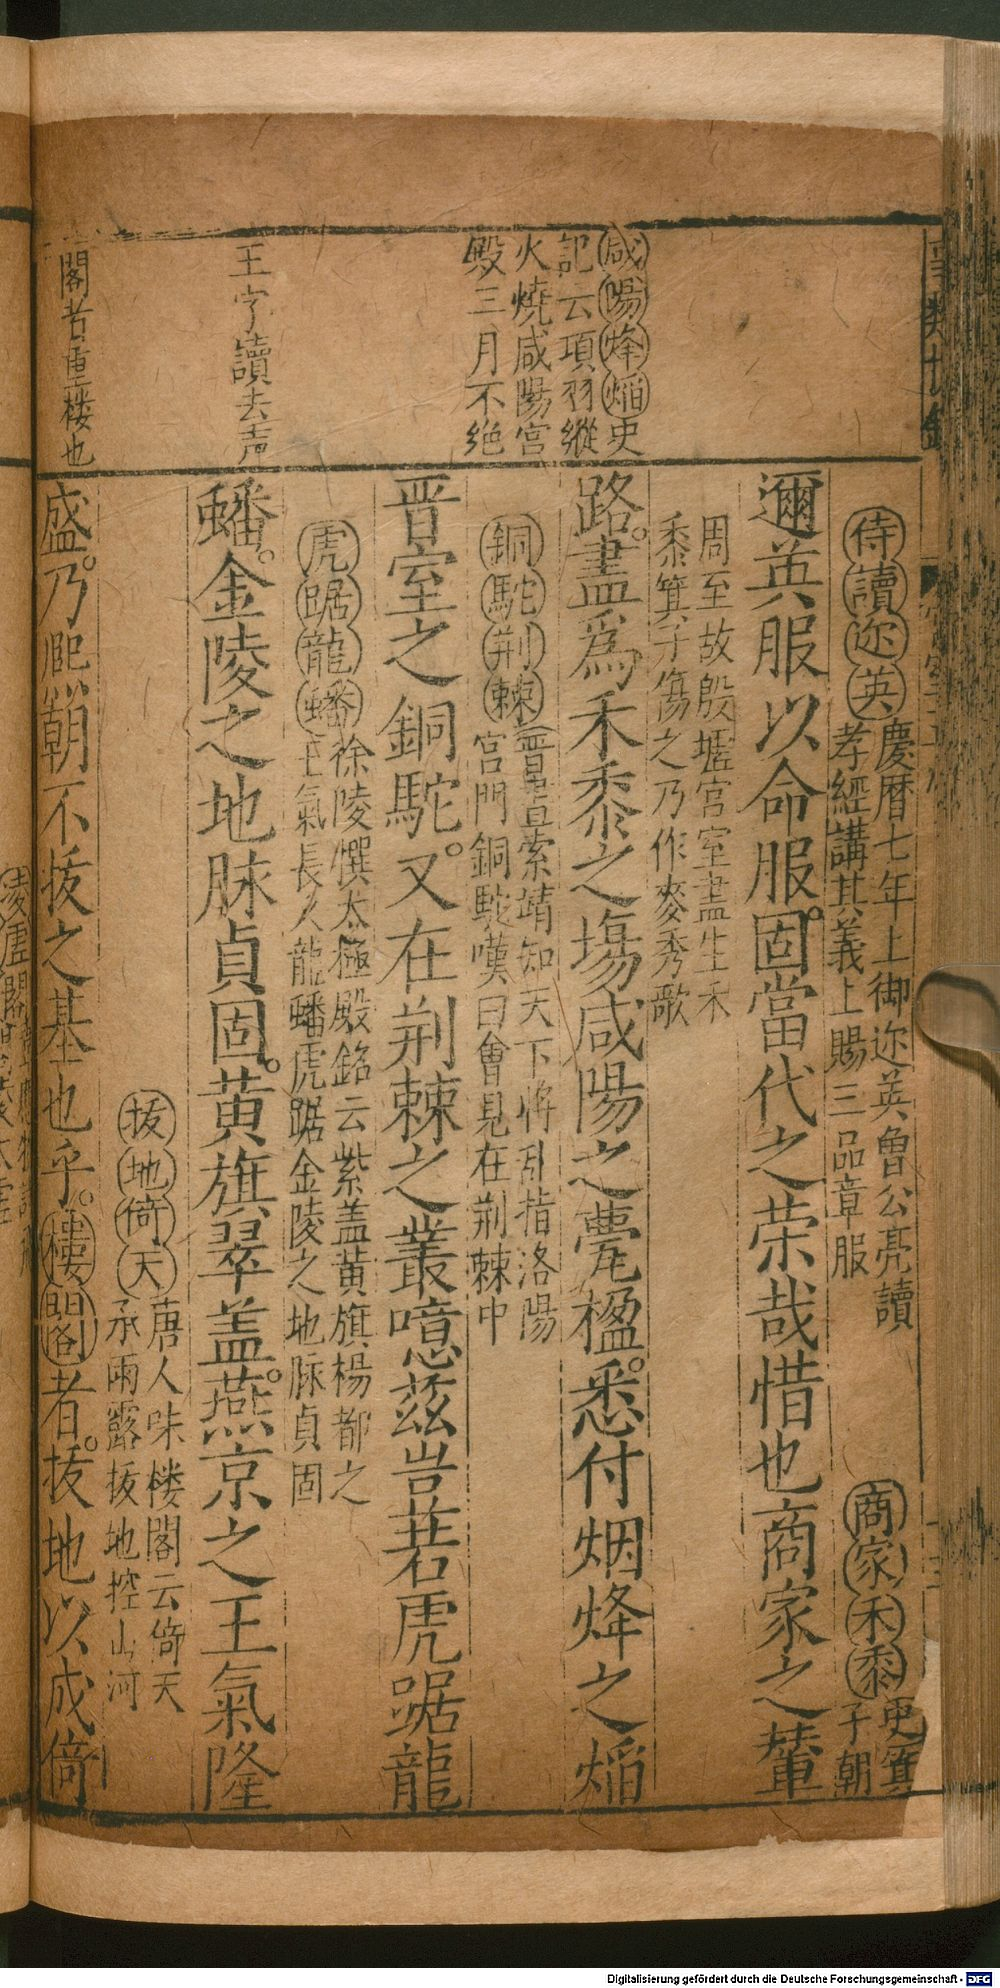 侍讀迩英慶曆七年上御迩英魯公亮讀
孝經講其義上賜三品章服
商家禾黍史箕
子朝
邇英服以命服。固當代之荣哉惜也商家之輦
周至故殷墟宮室盡生禾
黍箕子傷之乃作麥秀歌
咸陽烽焰史
記云項羽縱
火燒咸陽宮
殿三月不绝
路。盡爲禾黍之塲咸陽之甍楹。悉付烟烽之焰
銅駝荆棘晉書索靖知天下将乱指洛陽
宮門銅駝嘆曰會見在荆棘中
晋室之銅駝。又在荆棘之叢噫茲岂若虎踞龍
虎踞龍蟠徐陵撰太極殿銘云紫盖黃旗楊都之
王氣長久龍蟠虎踞金陵之地脉貞固
王字讀去声
蟠。金陵之地脉貞固。黃旗翠盖。燕京之王氣隆
拔地倚天唐人咏楼閣云倚天
承雨露拔地控山河
閣者重楼也
盛。乃熈朝不拔之基也乎。樓閣者。拔地以成倚
Digitalisierung gefördert durch die Deutsche Forschungsgemeinschaft - DFG